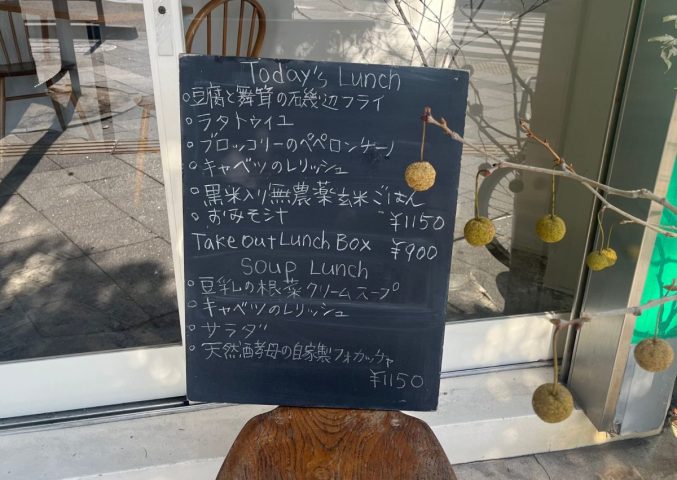 Today's Lunch
○豆腐と舞茸の石磯辺フライ
○ラタトゥイユ
○ブロッコリーのペペロンチーノ
○キャベツのレリッシュ
○黒米入り無農薬玄米ごはん
○おみそ汁 ¥1150
Take out Lunch Box ¥900
Soup Lunch
○豆乳の根菜クリームスープ
○キャベツのレリッシュ
○サラダ
○天然酵母の自家製フォカッチャ
¥1150